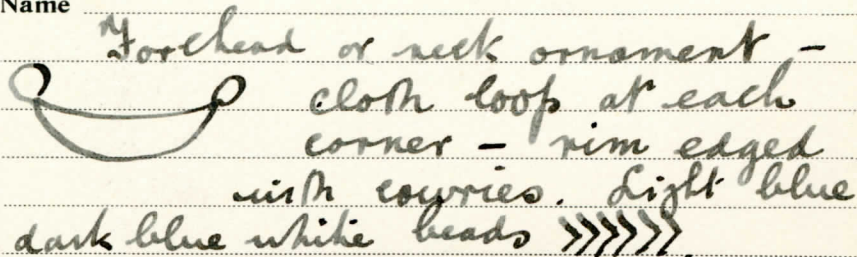 Name
Forehead or neck ornament –
cloth loop at each
corner – rim edged
with cowries. Light blue
dark blue white beads >>>>>>>.